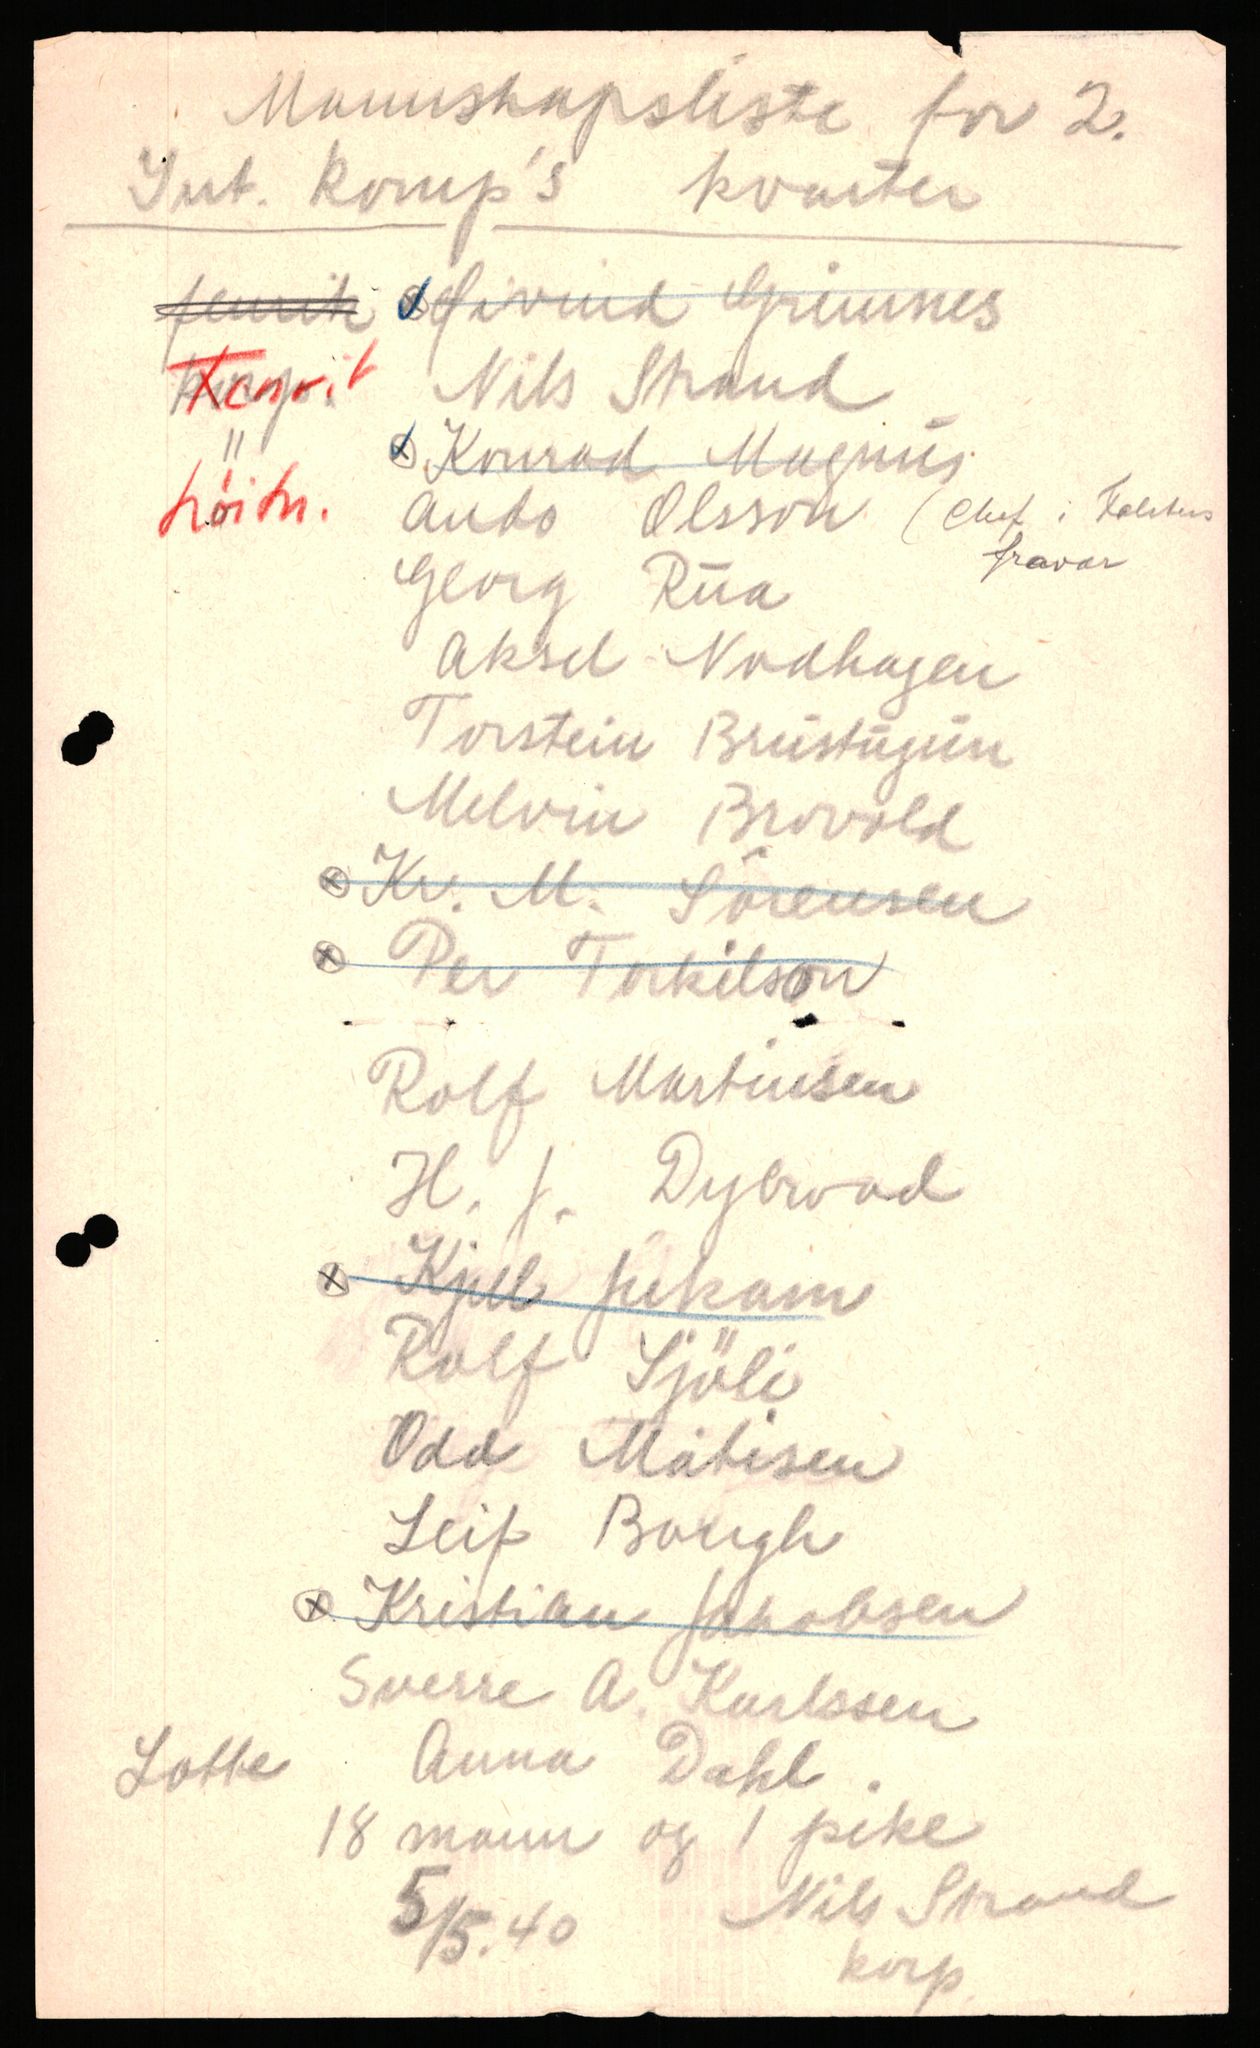 Mannskapsliste for 2.
Int. komp's kvarter
fenrik Øivind Grimnes
korp. Fenrik Nils Strand
" Konrad Magnus
Ando Olsson (Chef i
fravær
Georg Rua
Aksel Nodhagen
Torstein Brustugun
Melvin Brovold
Kr. M. Sörensen
Per Torkilson
Rolf Martinsen
H. J. Dybwad
Kjell Jukam
Rolf Sjöli
Odd Matisen
Leif Bough
Kristian Jakobsen
Sverre A. Karlssen
Lotte Anna Dahl.
18 mann og 1 pike
5/5.40 Nils Strand
korp.